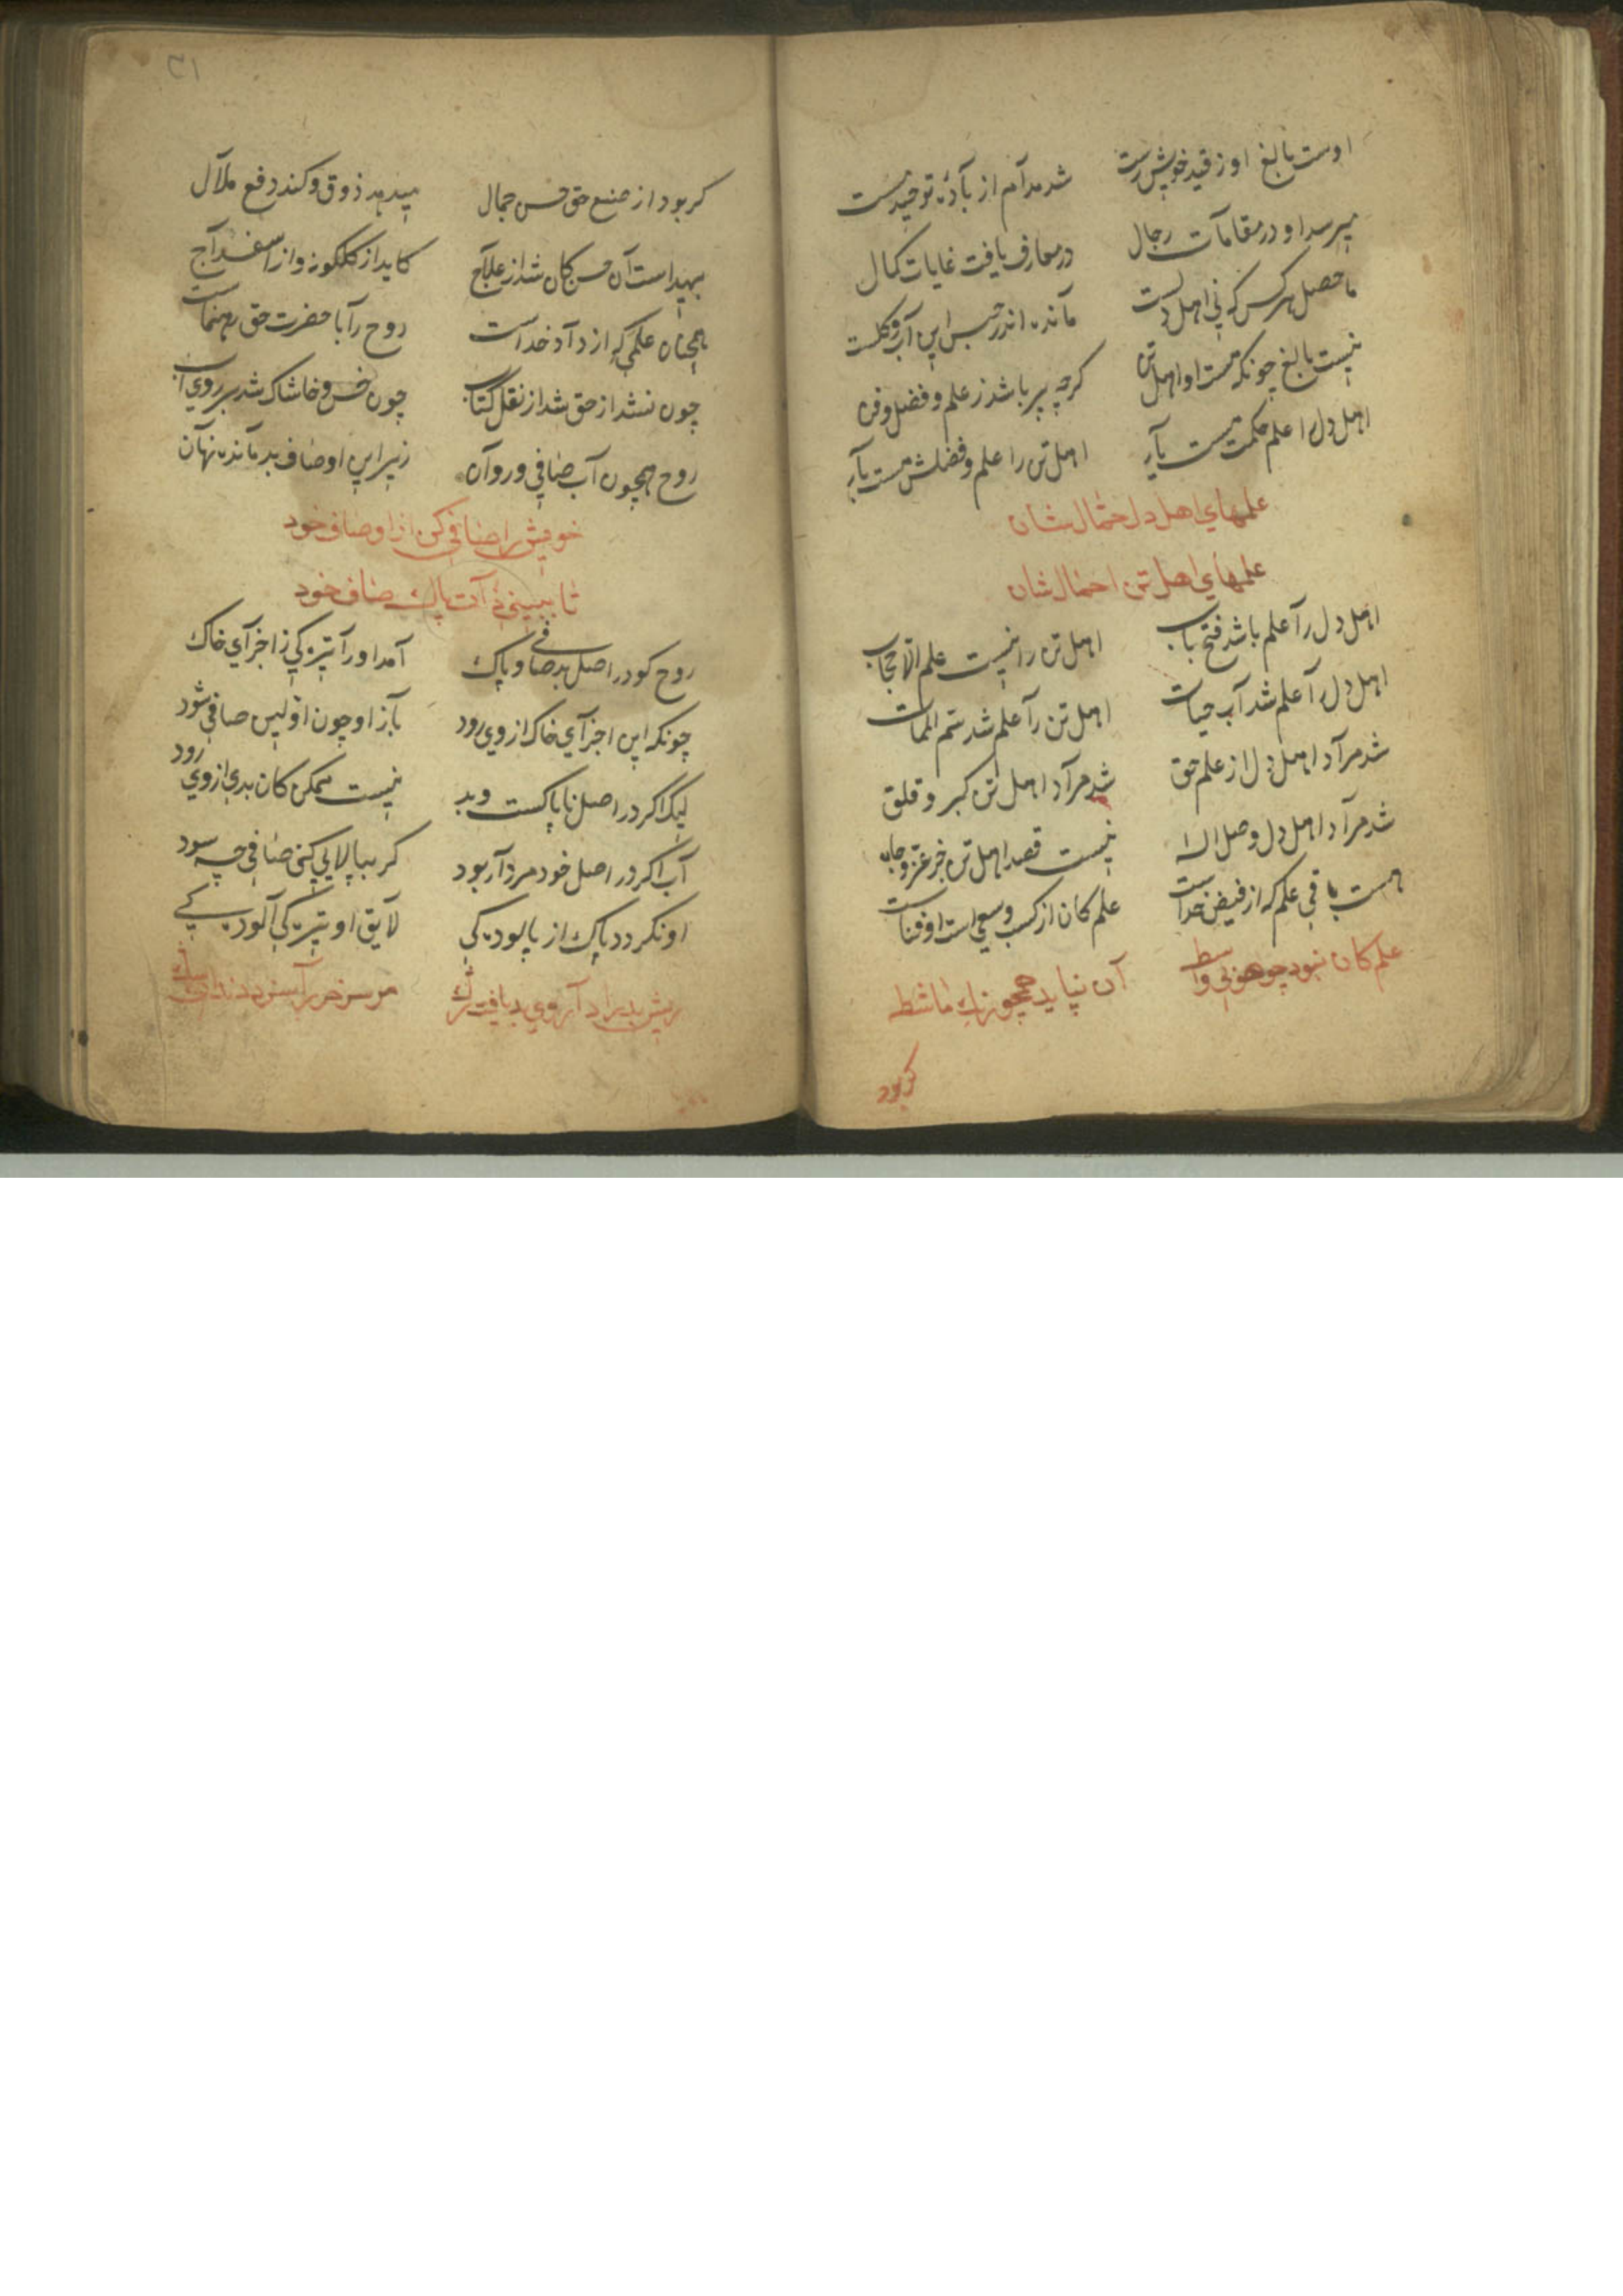 اوست بالغ او ز قید خویش رست
شد مدام از باده توحید مست
میرسد او در مقامات رجال
در معارف یافت غایات کمال
ماحصل هر کس که نی اهل دلست
مانده اندر حبس این آب و کلست
نیست بالغ چونکه هست او اهل تن
کرچه پر باشد ز علم و فضل و فن
اهل دل را علم حکمت هست یار
اهل تن را علم و فضلش هست بار
علمهای اهل دل حمالشان
علمهای اهل تن احمالشان
اهل دل را علم باشد فتح باب
اهل تن را نیست علم الا حجاب
اهل دل را علم شد آب حیات
اهل تن را علم شد سم الممات
شد مراد اهل دل از علم حق
شد مراد اهل تن کبر و قلق
شد مراد اهل دل وصل اله
نیست قصد اهل تن جز عز و جاه
هست باقی علم که از فیض خداست
علم کان از کسب و سعی است او فناست
علم کان نبود ز هو بی واسطه
آن نپاید همچو رنک ماشطه
کر بود
۳۱
کر بود از صنع حق حسن جمال
میدهد ذوق و کند دفع ملال
بیهداست آن حسن کان شد از علاج
کاید از کلکونه و از اسفداج
همچنان علمی که از داد خداست
روح را با حضرت حق رهنماست
چون نشد از حق شد از نقل کتاب
چون خس و خاشاک شد بر روی آب
روح همچون آب صافی و روان
زیر این اوصاف بد مانده نهان
خویش را صافی کن از اوصاف خود
تا ببینی ذات پاک صاف خود
روح کو در اصل بد صافی و پاک
آمد او را تیرکی ز اجزای خاک
چونکه این اجزای خاک از وی رود
باز او چون اولین صافی شود
لیک اکر در اصل ناپاکست و بد
نیست ممکن کان بدی از وی رود
آب اکر در اصل خود مردار بود
کر بپالایی کنی صافی چه سود
او نکردد پاک از پالودکی
لایق او تیرکی آلودکی
ریش بد را داروی بد یافت رک
مر سر خر را سزد دندان سک